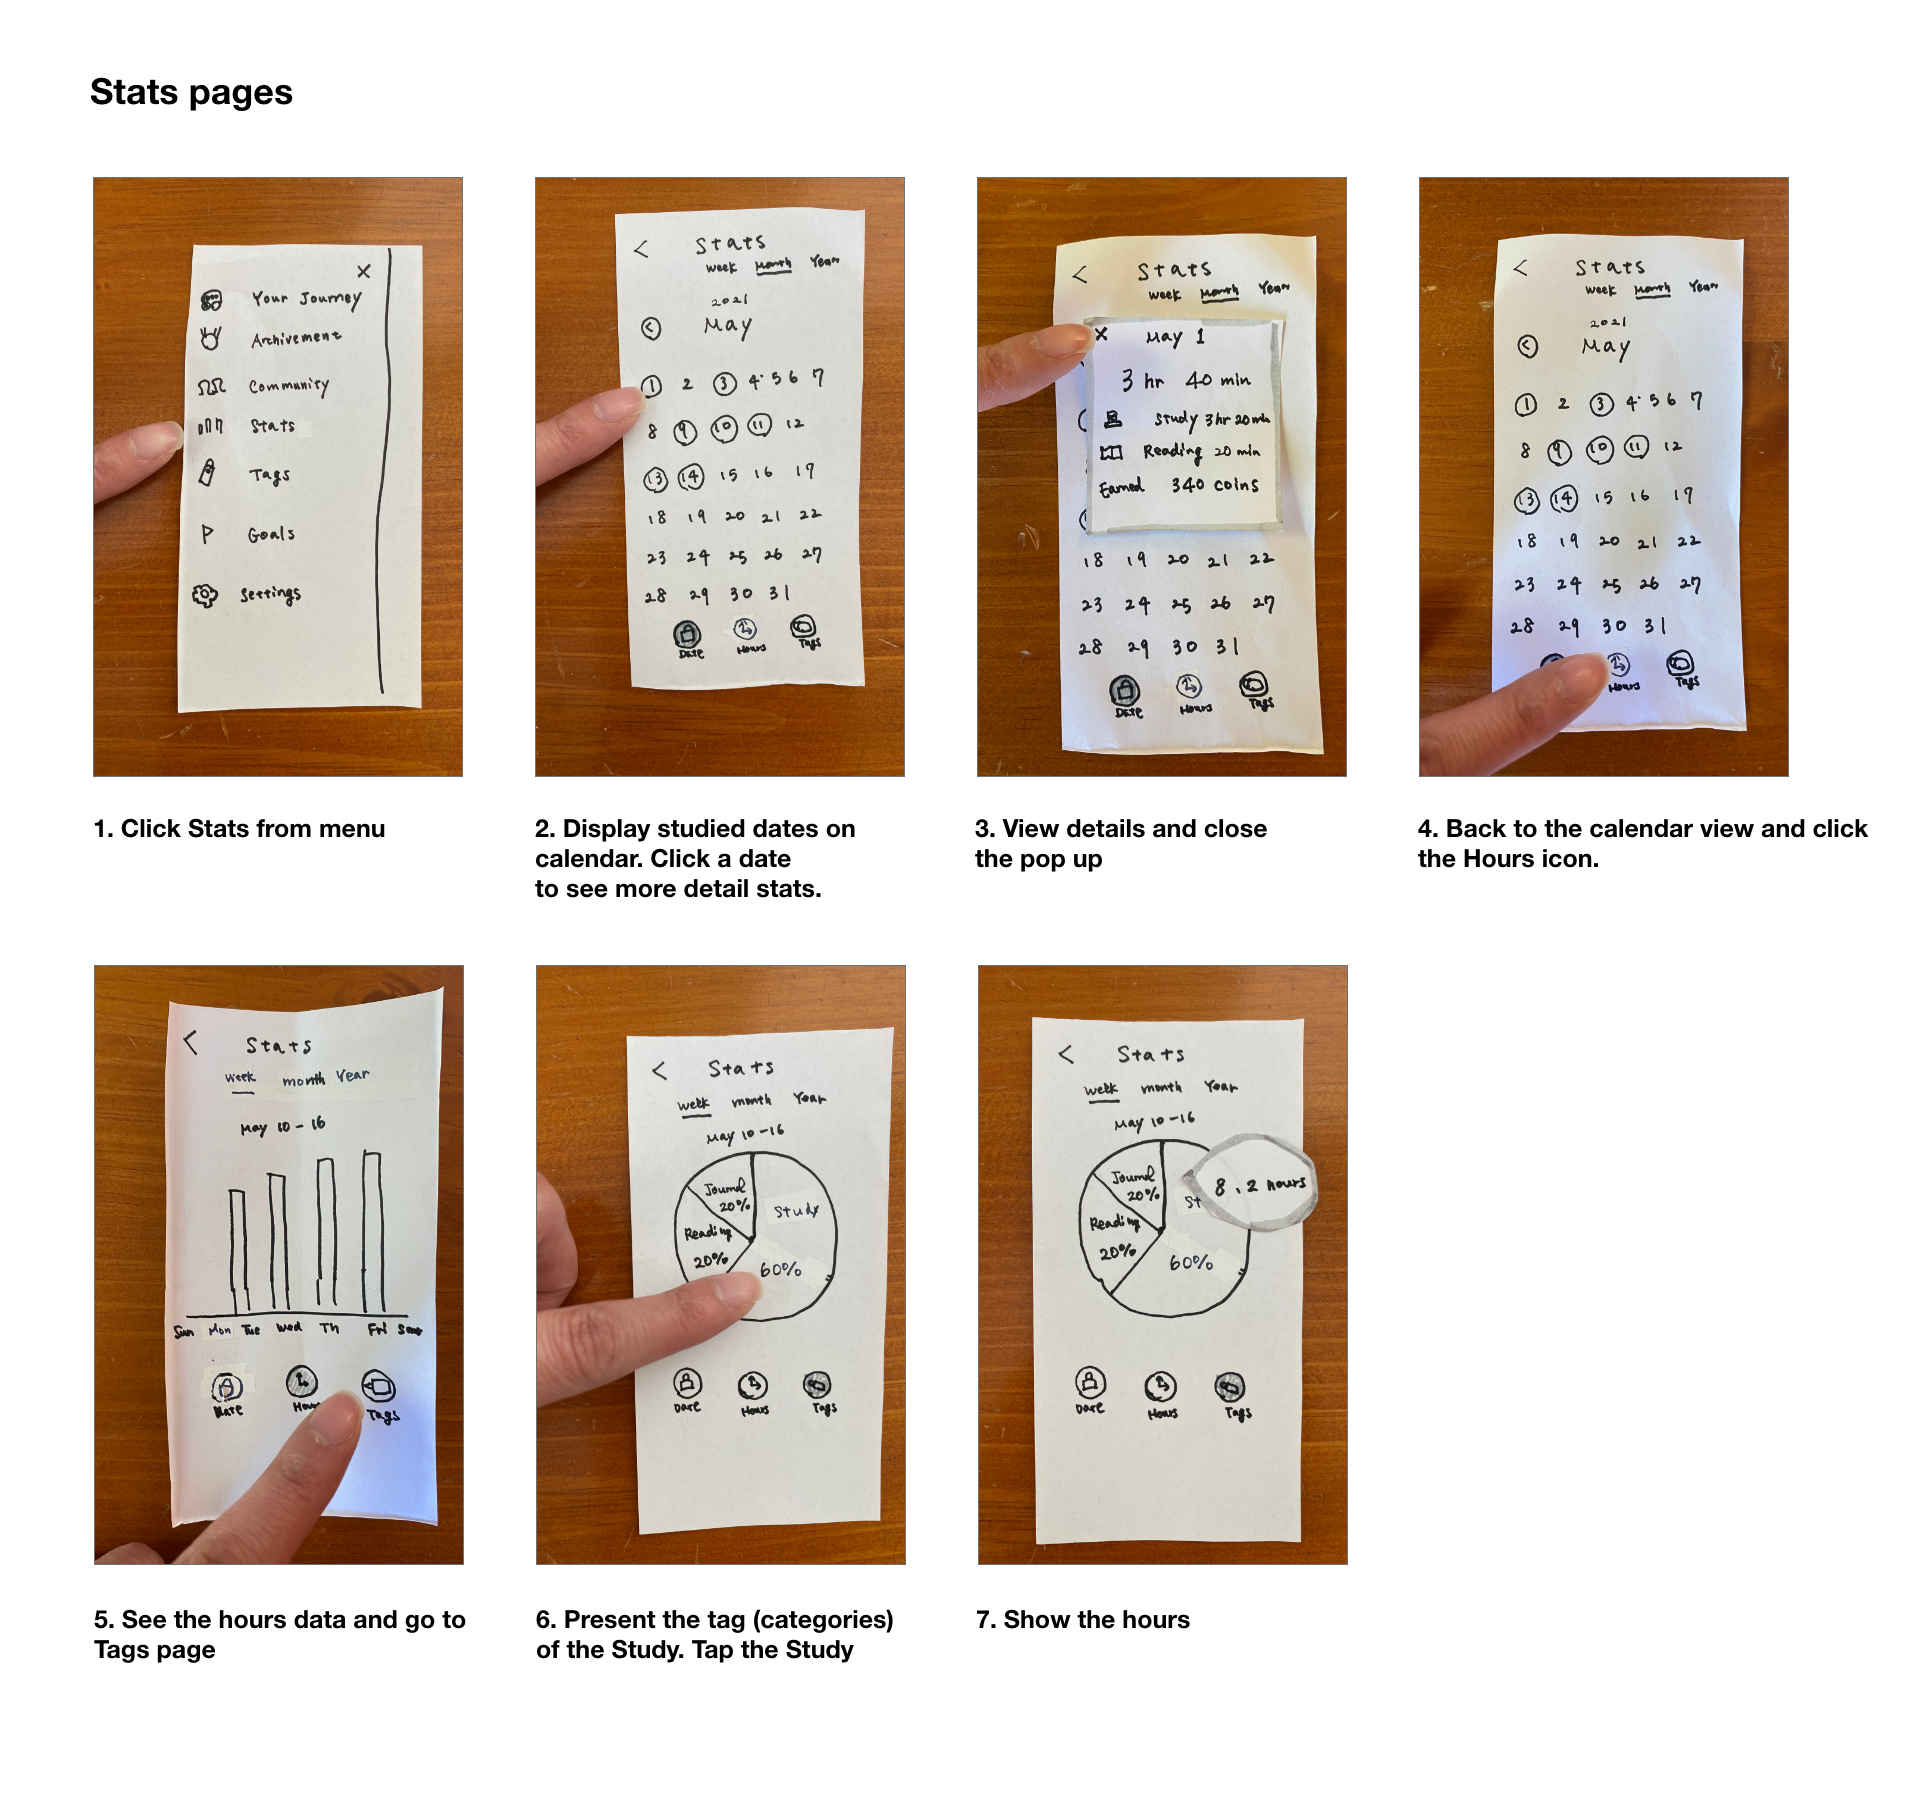 Stats pages
×
Your Journey
Archivement
Community
Stats
Tags
Goals
Settings
1. Click Stats from menu
< Stats
Week Month Year
2021
< May
1 2 3 4 5 6 7
8 9 10 11 12
13 14 15 16 17
18 19 20 21 22
23 24 25 26 27
28 29 30 31
Date Hours Tags
2. Display studied dates on
calendar. Click a date
to see more detail stats.
< Stats
Week Month Year
× May 1
3 hr 40 min
Study 3 hr 20 min
Reading 20 min
Earned 340 coins
18 19 20 21 22
23 24 25 26 27
28 29 30 31
Date Hours Tags
3. View details and close
the pop up
< Stats
Week Month Year
2021
< May
1 2 3 4 5 6 7
8 9 10 11 12
13 14 15 16 17
18 19 20 21 22
23 24 25 26 27
28 29 30 31
Hours Tags
4. Back to the calendar view and click
the Hours icon.
< Stats
Week month Year
May 10 - 16
Sun Mon Tue Wed Th Fri Sat
Date Hours Tags
5. See the hours data and go to
Tags page
< Stats
Week month Year
May 10 - 16
Journal
20%
Study
Reading
20%
60%
Date Hours Tags
6. Present the tag (categories)
of the Study. Tap the Study
< Stats
Week month Year
May 10 - 16
Journal
20%
St
8.2 hours
Reading
20%
60%
Date Hours Tags
7. Show the hours